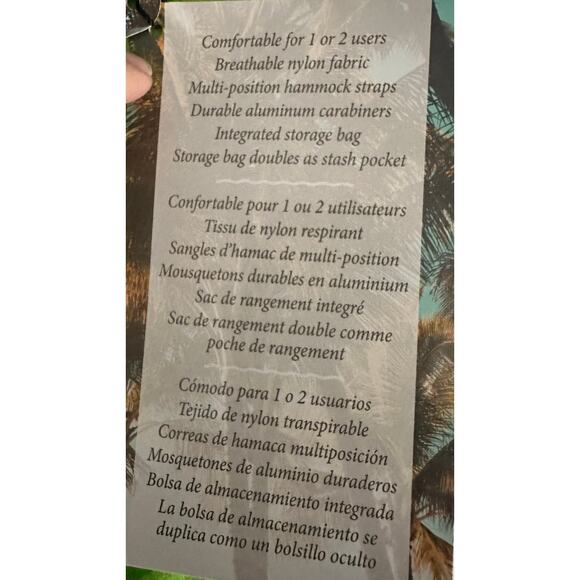 Comfortable for 1 or 2 users
Breathable nylon fabric
Multi-position hammock straps
Durable aluminum carabiners
Integrated storage bag
Storage bag doubles as stash pocket
Confortable pour 1 ou 2 utilisateurs
Tissu de nylon respirant
Sangles d'hamac de multi-position
Mousquetons durables en aluminium
Sac de rangement integré
Sac de rangement double comme
poche de rangement
Cómodo para 1 o 2 usuarios
Tejido de nylon transpirable
Correas de hamaca multiposición
Mosquetones de aluminio duraderos
Bolsa de almacenamiento integrada
La bolsa de almacenamiento se
duplica como un bolsillo oculto